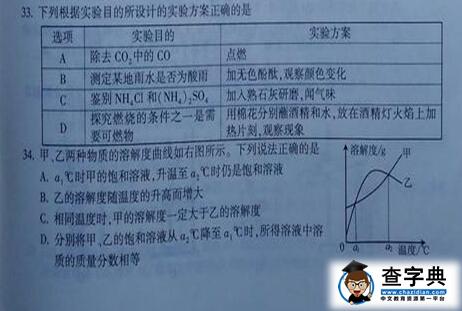 33. 下列根据实验目的所设计的实验方案正确的是
选项 实验目的 实验方案
A 除去CO₂中的CO 点燃
B 测定某地雨水是否为酸雨 加无色酚酞,观察颜色变化
C 鉴别NH₄Cl和(NH₄)₂SO₄ 加入熟石灰研磨,闻气味
D 探究燃烧的条件之一是需要可燃物 用棉花分别蘸酒精和水,放在酒精灯火焰上加热片刻,观察现象
34. 甲、乙两种物质的溶解度曲线如右图所示。下列说法正确的是
A. a₁℃时甲的饱和溶液,升温至a₂℃时仍是饱和溶液
B. 乙的溶解度随温度的升高而增大
C. 相同温度时,甲的溶解度一定大于乙的溶解度
D. 分别将甲、乙的饱和溶液从a₂℃降至a₁℃时,所得溶液中溶
质的质量分数相等
溶解度/g
甲
乙
0 a₁ a₂ 温度/℃
查字典
www.chazidian.com
中文教育资源第一平台